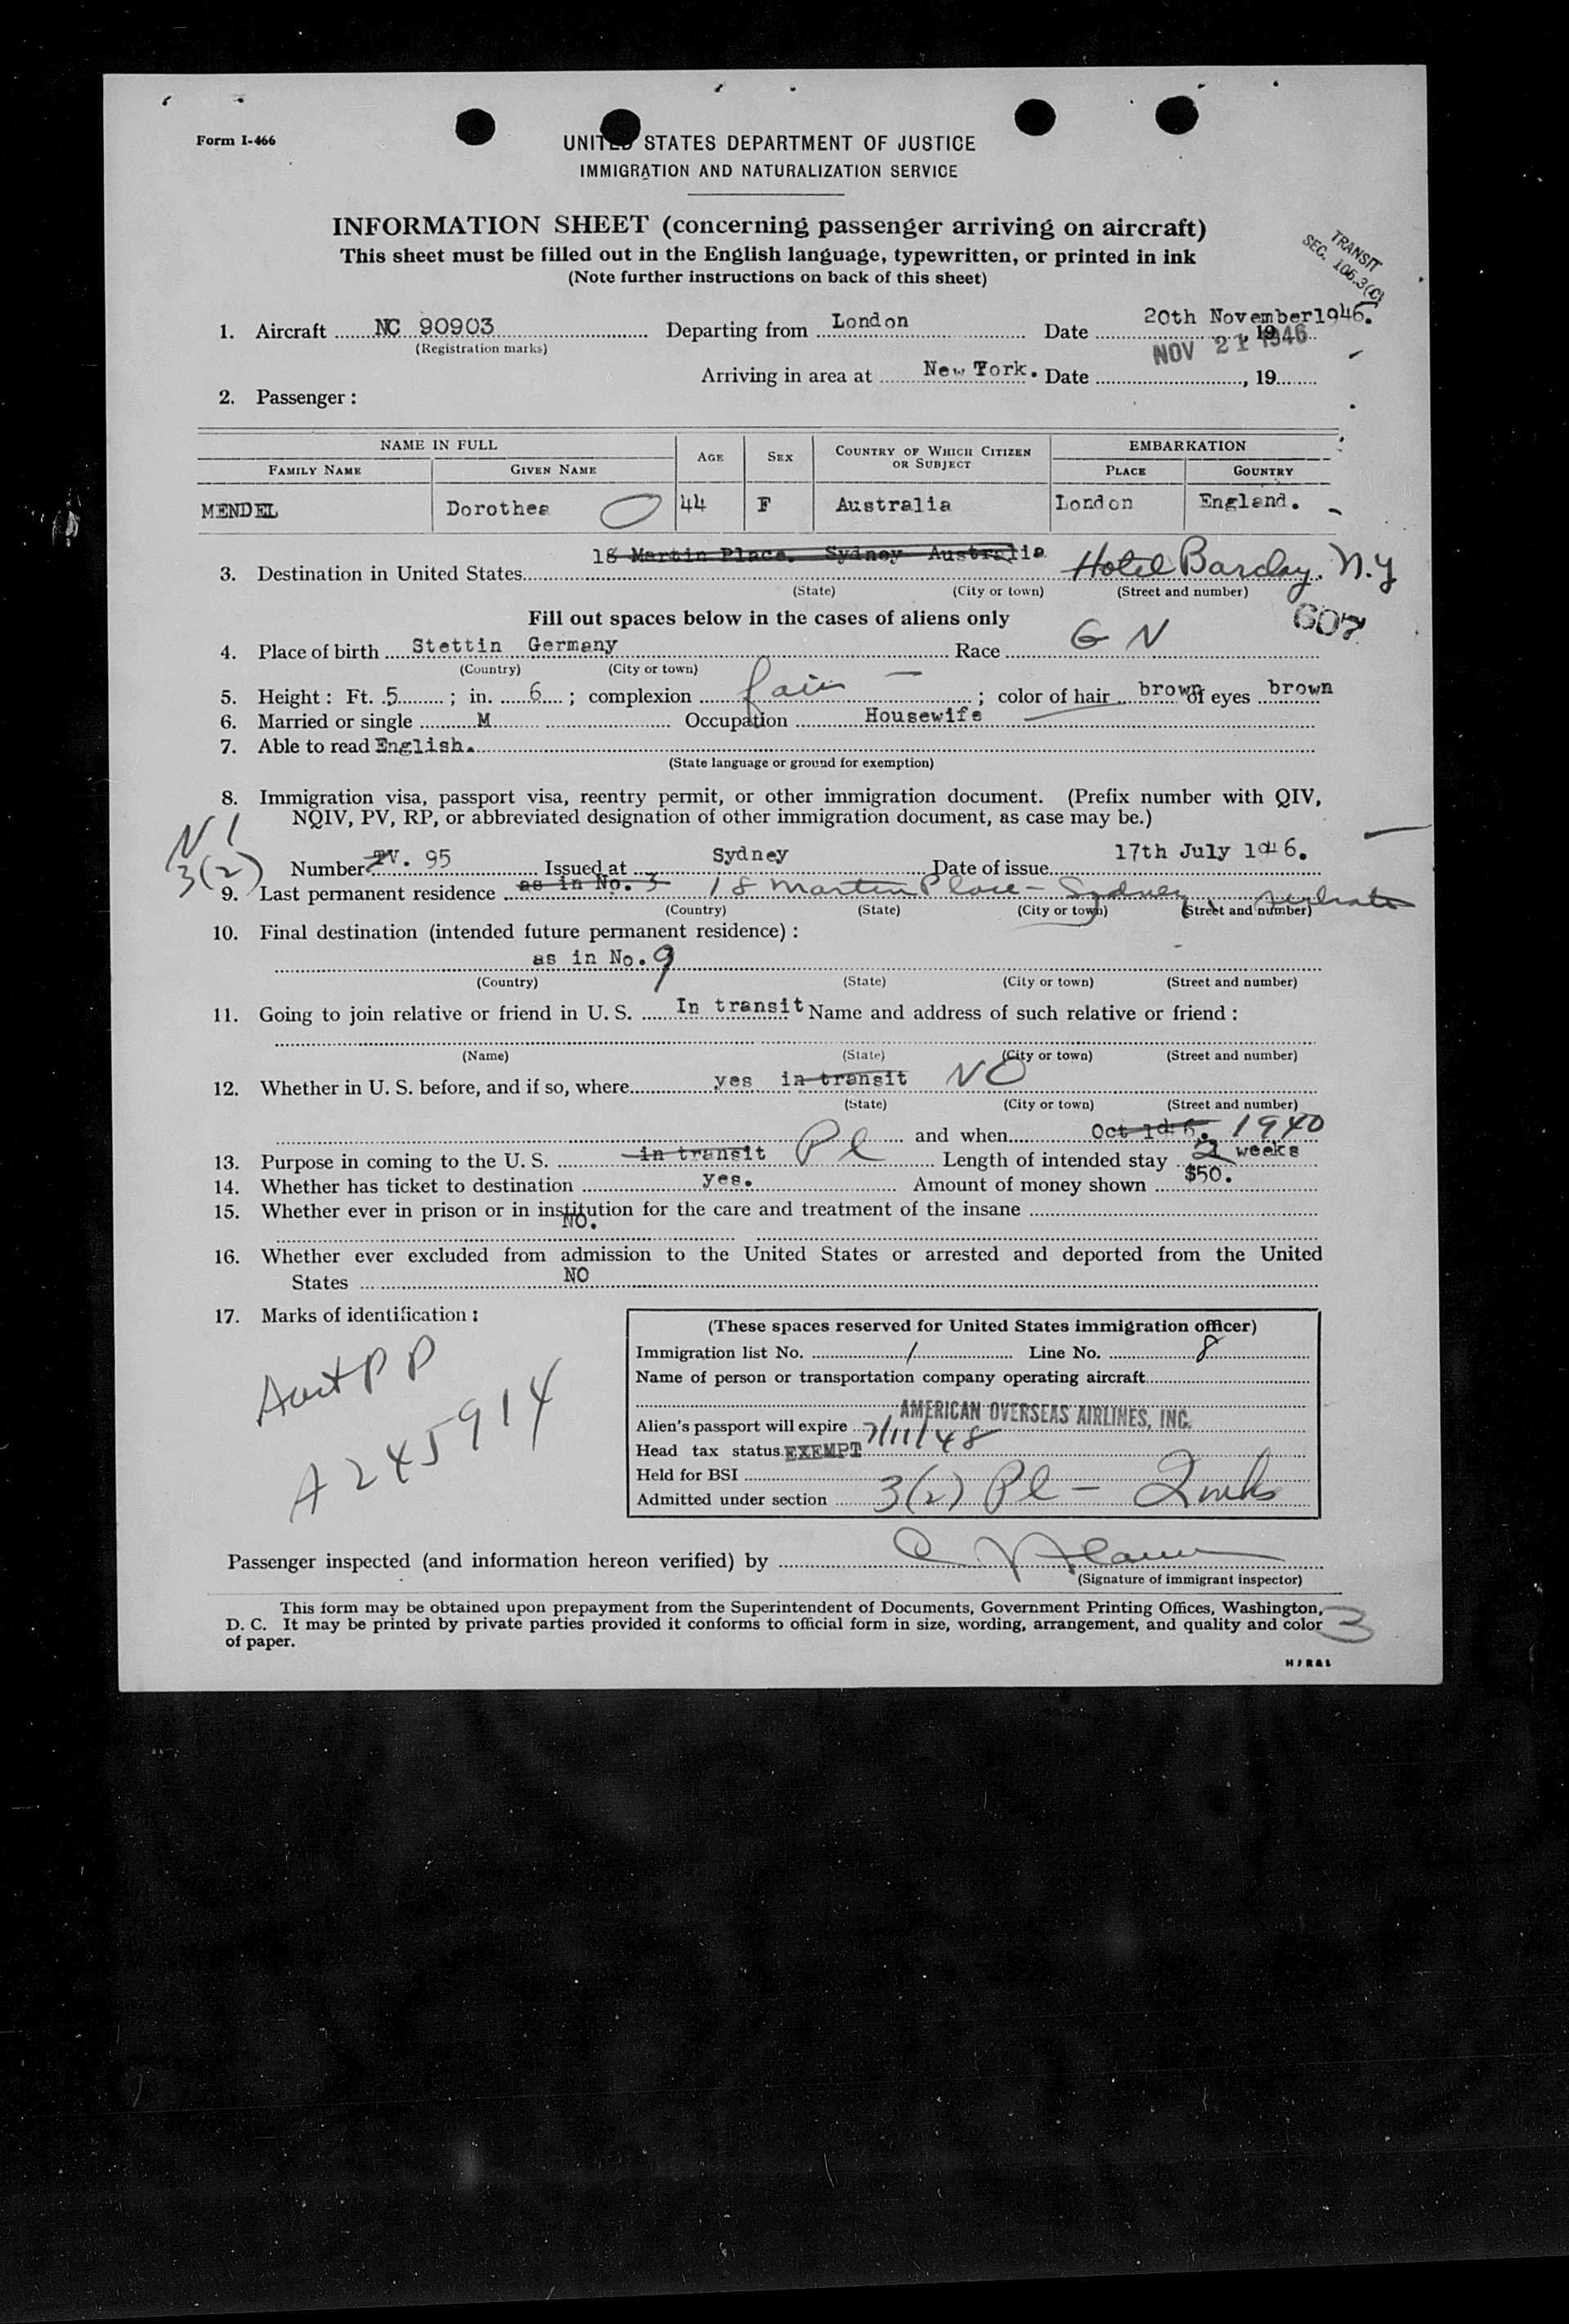 Form I-466
UNITED STATES DEPARTMENT OF JUSTICE
IMMIGRATION AND NATURALIZATION SERVICE
INFORMATION SHEET (concerning passenger arriving on aircraft)
This sheet must be filled out in the English language, typewritten, or printed in ink
(Note further instructions on back of this sheet)
TRANSIT
SEC. 106.3(C)
1. Aircraft NC 90903 Departing from London Date 20th November1946.
(Registration marks)
NOV 21 1946
Arriving in area at New York. Date , 19
2. Passenger:
NAME IN FULL AGE SEX COUNTRY OF WHICH CITIZEN OR SUBJECT EMBARKATION
FAMILY NAME GIVEN NAME PLACE COUNTRY
MENDEL Dorothea 44 F Australia London England.
18 Martin Place. Sydney Australia
3. Destination in United States Hotel Barclay. N.Y
(State) (City or town) (Street and number)
Fill out spaces below in the cases of aliens only
607
4. Place of birth Stettin Germany Race G N
(Country) (City or town)
5. Height: Ft. 5 ; in. 6 ; complexion fair ; color of hair brown of eyes brown
6. Married or single M Occupation Housewife
7. Able to read English.
(State language or ground for exemption)
8. Immigration visa, passport visa, reentry permit, or other immigration document. (Prefix number with QIV,
NQIV, PV, RP, or abbreviated designation of other immigration document, as case may be.)
N 1
3(2)
Number TV. 95 Issued at Sydney Date of issue 17th July 1946.
9. Last permanent residence as in No. 3 18 Martin Place - Sydney, Australia
(Country) (State) (City or town) (Street and number)
10. Final destination (intended future permanent residence):
as in No. 9
(Country) (State) (City or town) (Street and number)
11. Going to join relative or friend in U. S. In transit Name and address of such relative or friend:
(Name) (State) (City or town) (Street and number)
12. Whether in U. S. before, and if so, where yes in transit NO
(State) (City or town) (Street and number)
and when Oct 1940
13. Purpose in coming to the U. S. in transit Pl Length of intended stay 2 weeks
14. Whether has ticket to destination yes. Amount of money shown $50.
15. Whether ever in prison or in institution for the care and treatment of the insane
NO.
16. Whether ever excluded from admission to the United States or arrested and deported from the United
States NO
17. Marks of identification:
Aust P P
A 245914
(These spaces reserved for United States immigration officer)
Immigration list No. 1 Line No. 8
Name of person or transportation company operating aircraft
AMERICAN OVERSEAS AIRLINES, INC.
Alien's passport will expire 7/11/48
Head tax status EXEMPT
Held for BSI
Admitted under section 3(2) Pl - 2 wks
Passenger inspected (and information hereon verified) by
(Signature of immigrant inspector)
This form may be obtained upon prepayment from the Superintendent of Documents, Government Printing Offices, Washington,
D. C. It may be printed by private parties provided it conforms to official form in size, wording, arrangement, and quality and color
of paper.
3